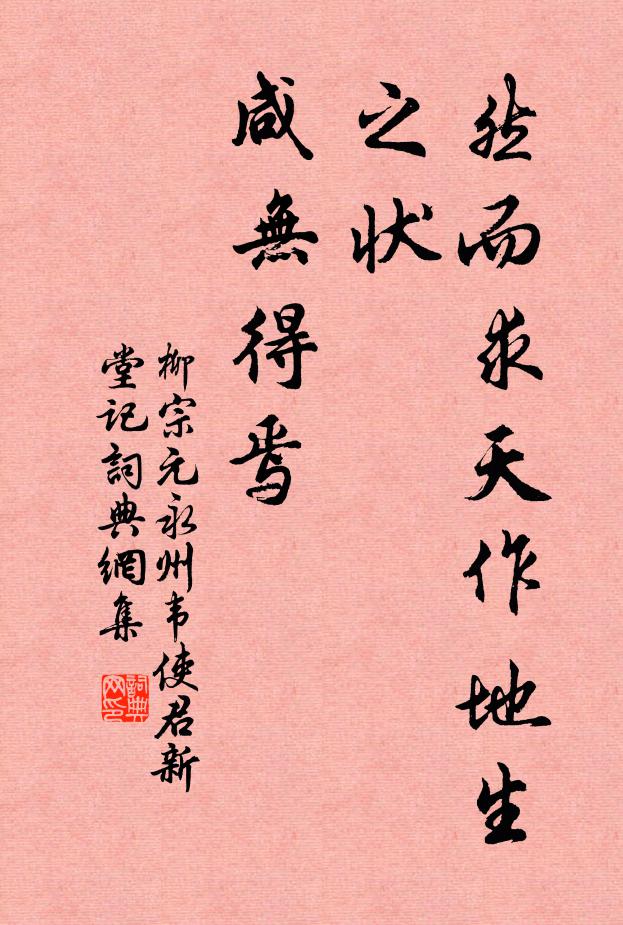 然而求天作地生
之状
咸無得焉
柳宗元永州韦使君新
堂记詞典網集
詞典
网印